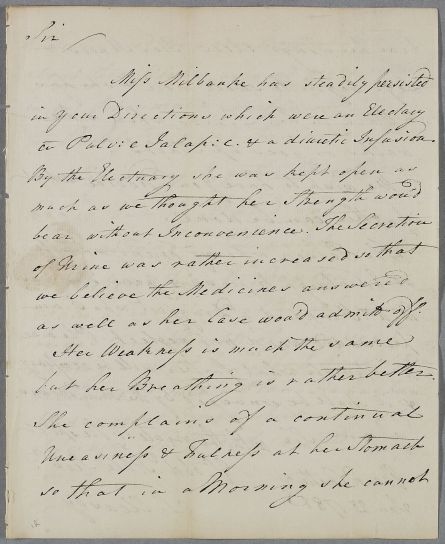 Sir
Miss Milbanke has steadily persisted
in your Directions which were an Electary
e Pulv: e Jalap: c. & a diuretic Infusion.
By the Electuary she was kept open as
much as we thought her Strength would
bear without Inconvenience. The Secretion
of Urine was rather increased so that
we believe the Medicines answer'd
as well as her Case would admit off
Her Weakness is much the same
but her Breathing is rather better
She complains of a continual
Uneasiness & Fulness at her Stomach
so that in a Morning she cannot